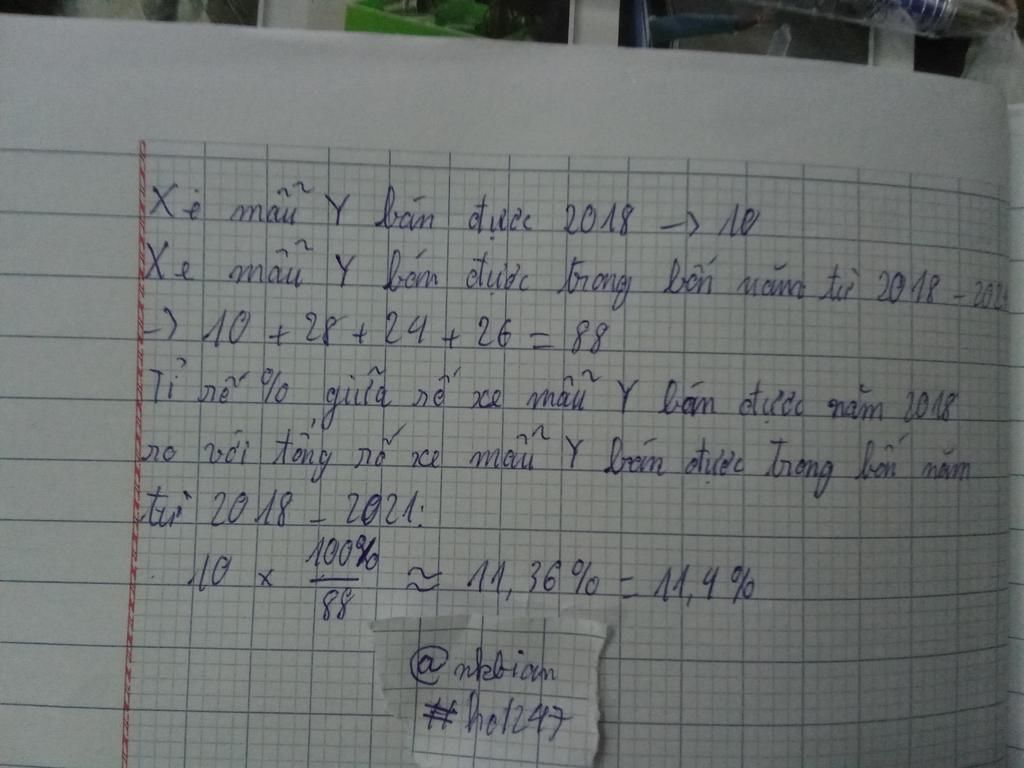 Xe mẫu Y bán được 2018 -> 10
Xe mẫu Y bán được trong bốn năm từ 2018 - 2021
-> 10 + 28 + 24 + 26 = 88
Tỉ số % giữa số xe mẫu Y bán được năm 2018
so với tổng số xe mẫu Y bán được trong bốn năm
từ 2018 - 2021:
10 × 100%/88 ≈ 11,36% = 11,4%
@nkbian
#ho1247